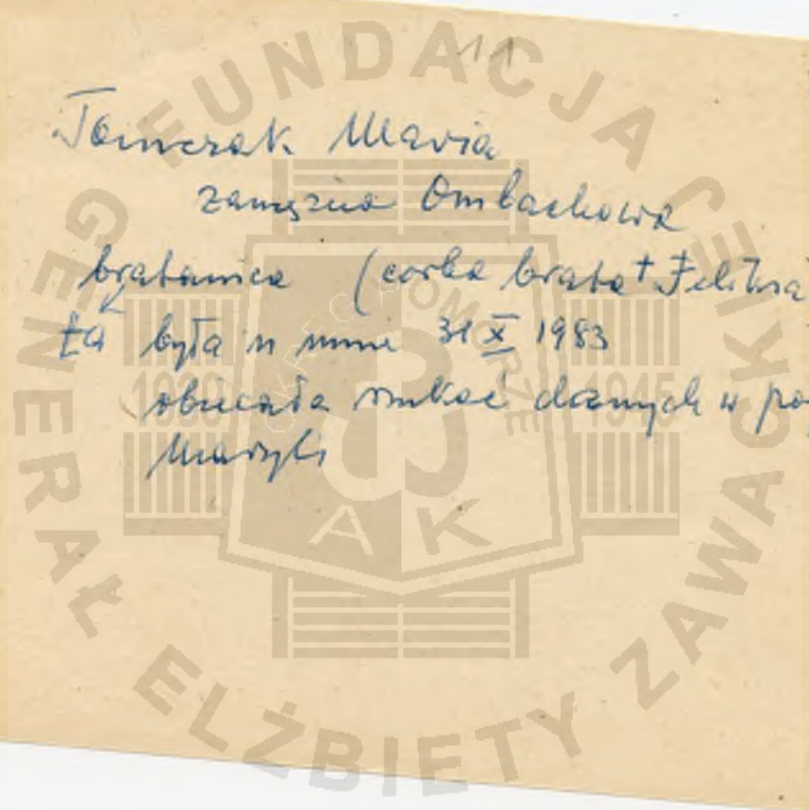 11
Tomczak Maria
zamężna Ombachowa
bratanica (córka brata + Feliksa
ta była u mnie 31 X 1983
obiecała szukać danych u
Maryli
FUNDACJA GENERAŁ ELŻBIETY ZAWACKIEJ
OKRĘG POMORZE
1939 1945
AK